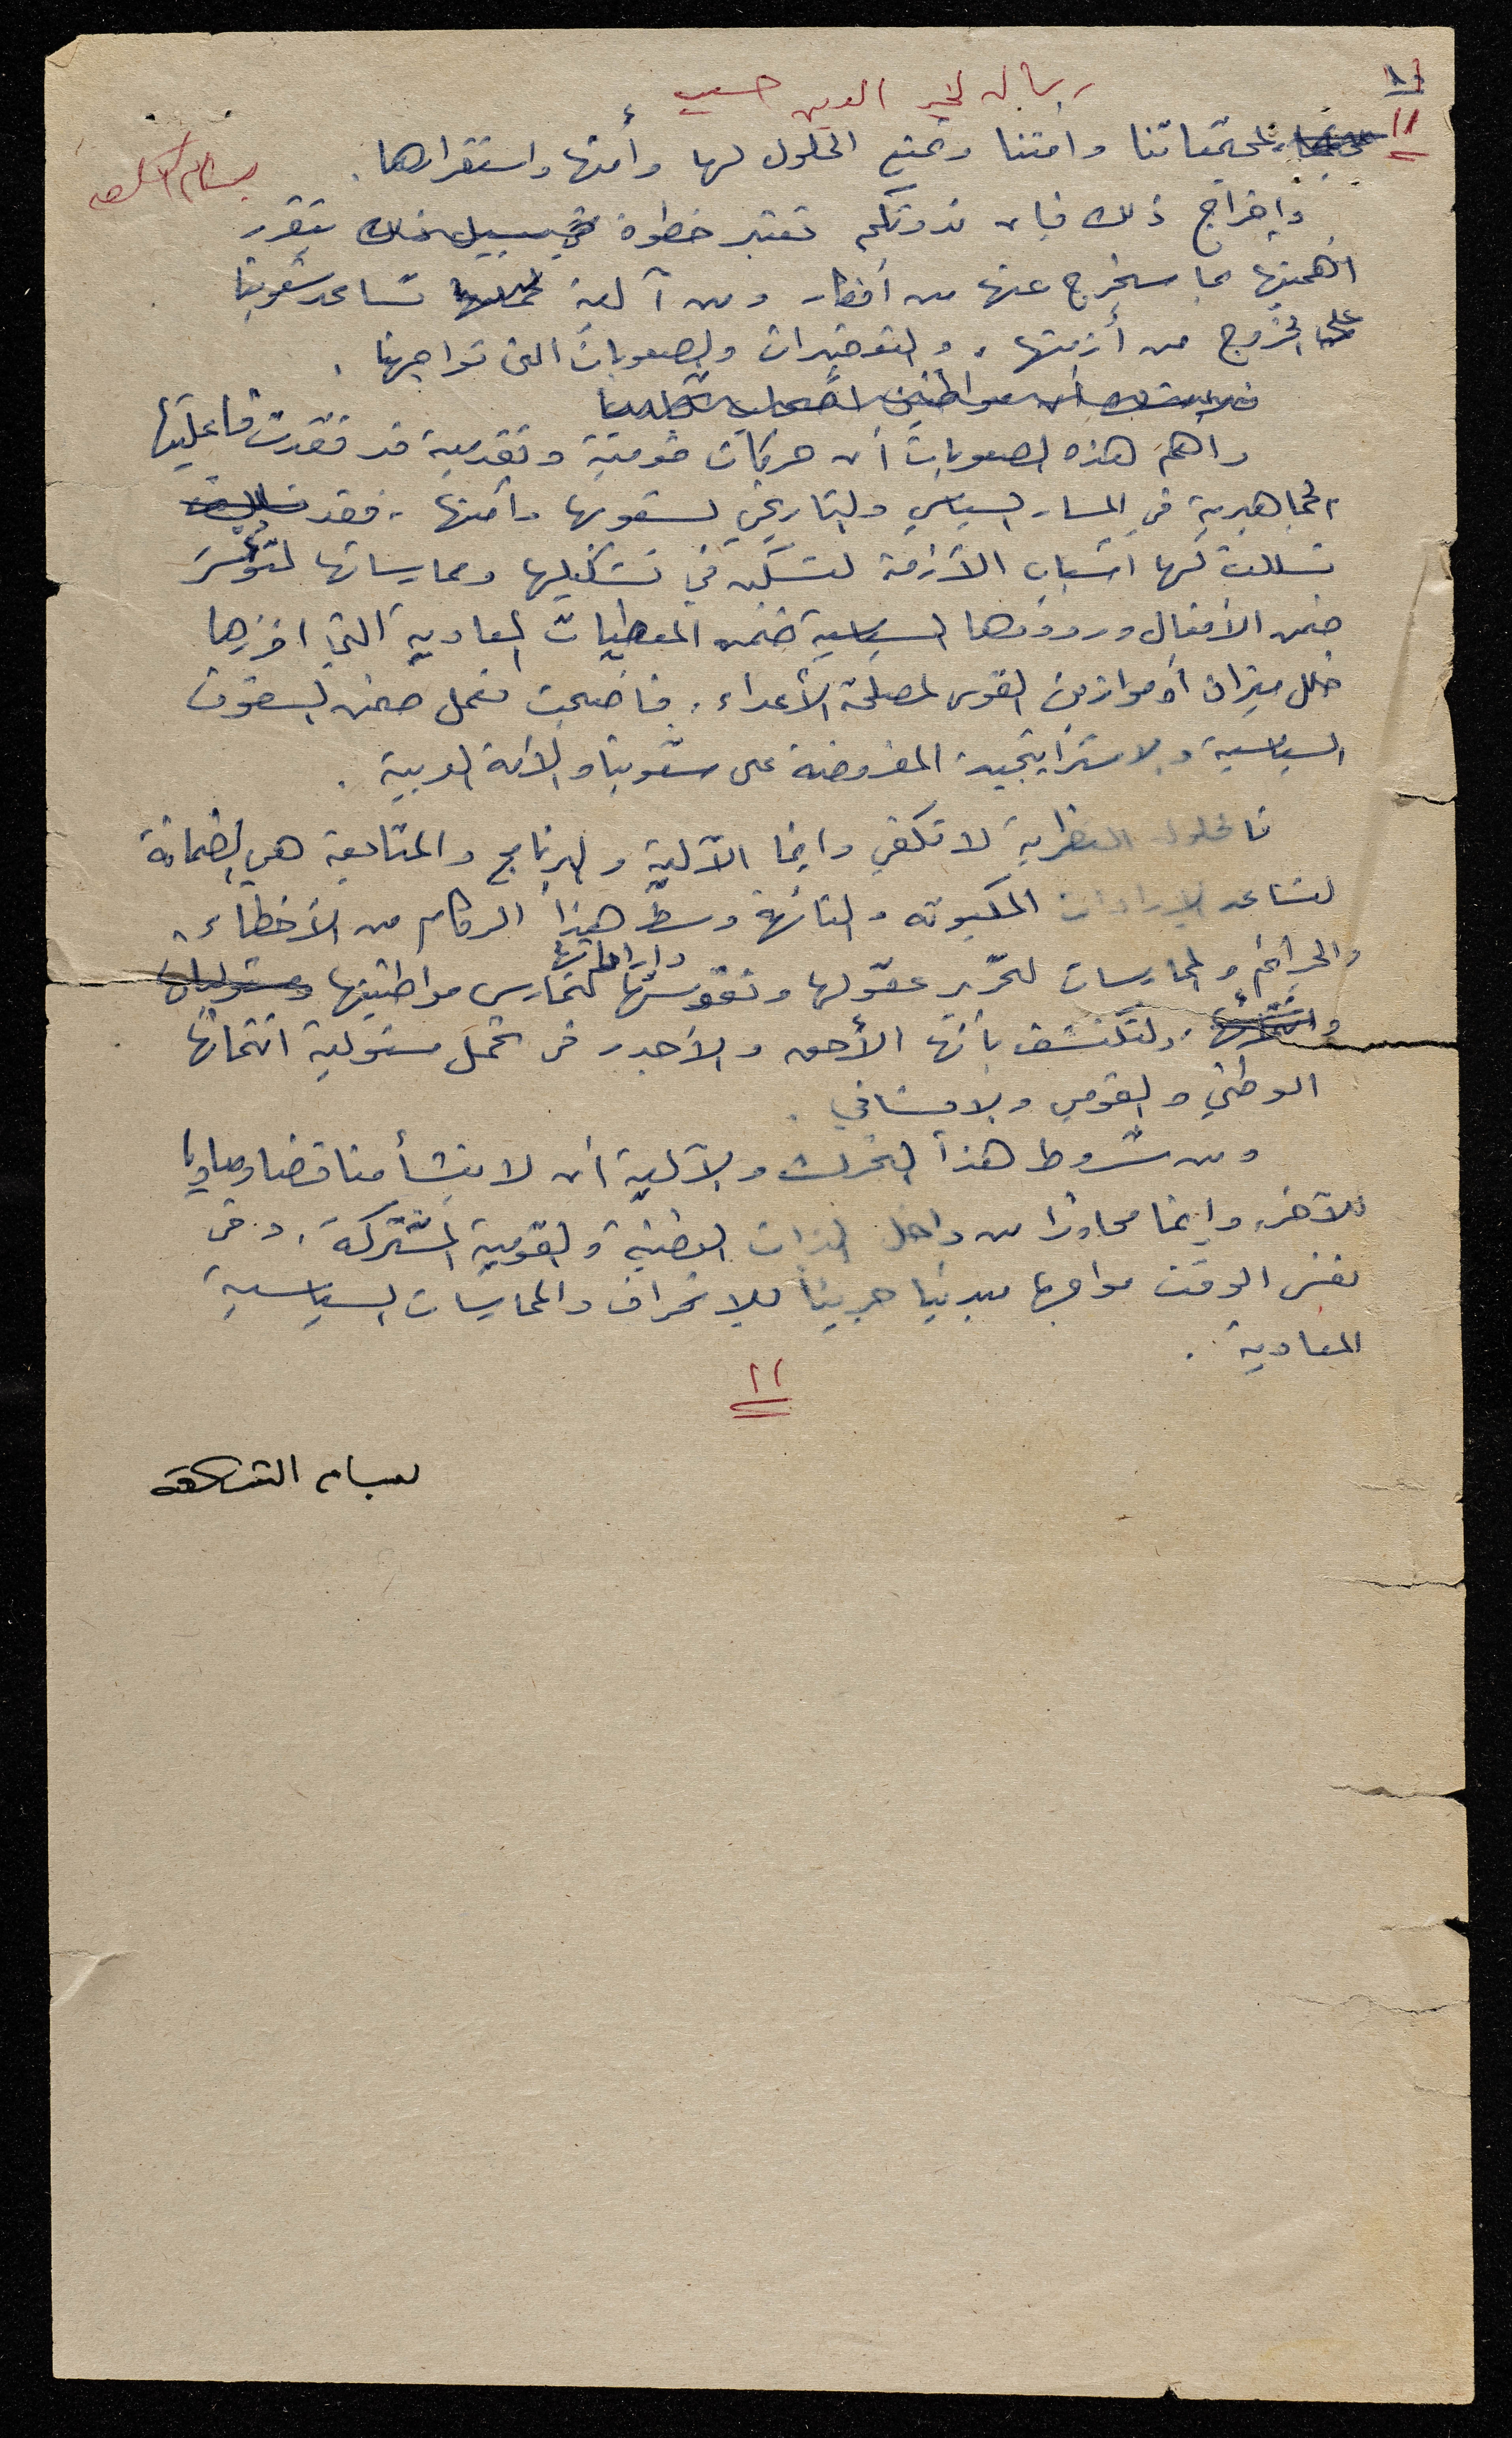 رسالة لخير الدين حسيب
١١
بسام الشكعة
لمجتمعاتنا وامتنا وتمنع الحلول لها وأمنها واستقرارها.
وإخراج ذلك فإن ندوتكم تعتبر خطوة تتقرر
اهميتها بما سيخرج عنها من أفكار ومن آلية تساعد شعوبنا
على الخروج من أزمتها، والصعوبات التي تواجهنا.
واهم هذه الصعوبات أن حركات قومية وتقدمية قد فقدت فاعليتها
الجماهيرية في المسار السياسي والتاريخي لشعوبها وامتها، فقد
تسللت لها اسباب الأزمة لتسكن في تشكيلها وممارساتها
ضمن الأفعال وردودها السياسية ضمن المعطيات المعادية التي افرزها
خلل ميزان أو موازين القوى لمصلحة الأعداء. فاضحت تعمل ضمن السقوف
السياسية والاستراتيجية المفروضة على شعوبنا والأمة العربية.
فالحلول النظرية لا تكفي وإنما الآلية والبرنامج والمتابعة هي الضمانة
لتساعد الإرادات المكبوته والتائهة وسط هذا الركام من الأخطاء
والجرائم والممارسات لتحرير عقولها ونفوسها وإراداتها لتمارس مواطنيتها
ولتكتشف بأنها الأحق والأجدر في تحمل مسئولية انتمائها
الوطني والقومي والإنساني.
ومن شروط هذا التحرك والآلية أن لا ينشأ مناقضا ومعاديا
للآخر وإنما محاورا من داخل الذات الوطنية والقومية المشتركة. وفي
نفس الوقت مواجها مبدئيا جريئا للانحراف والممارسات السياسية
المعادية.
١١
بسام الشكعة